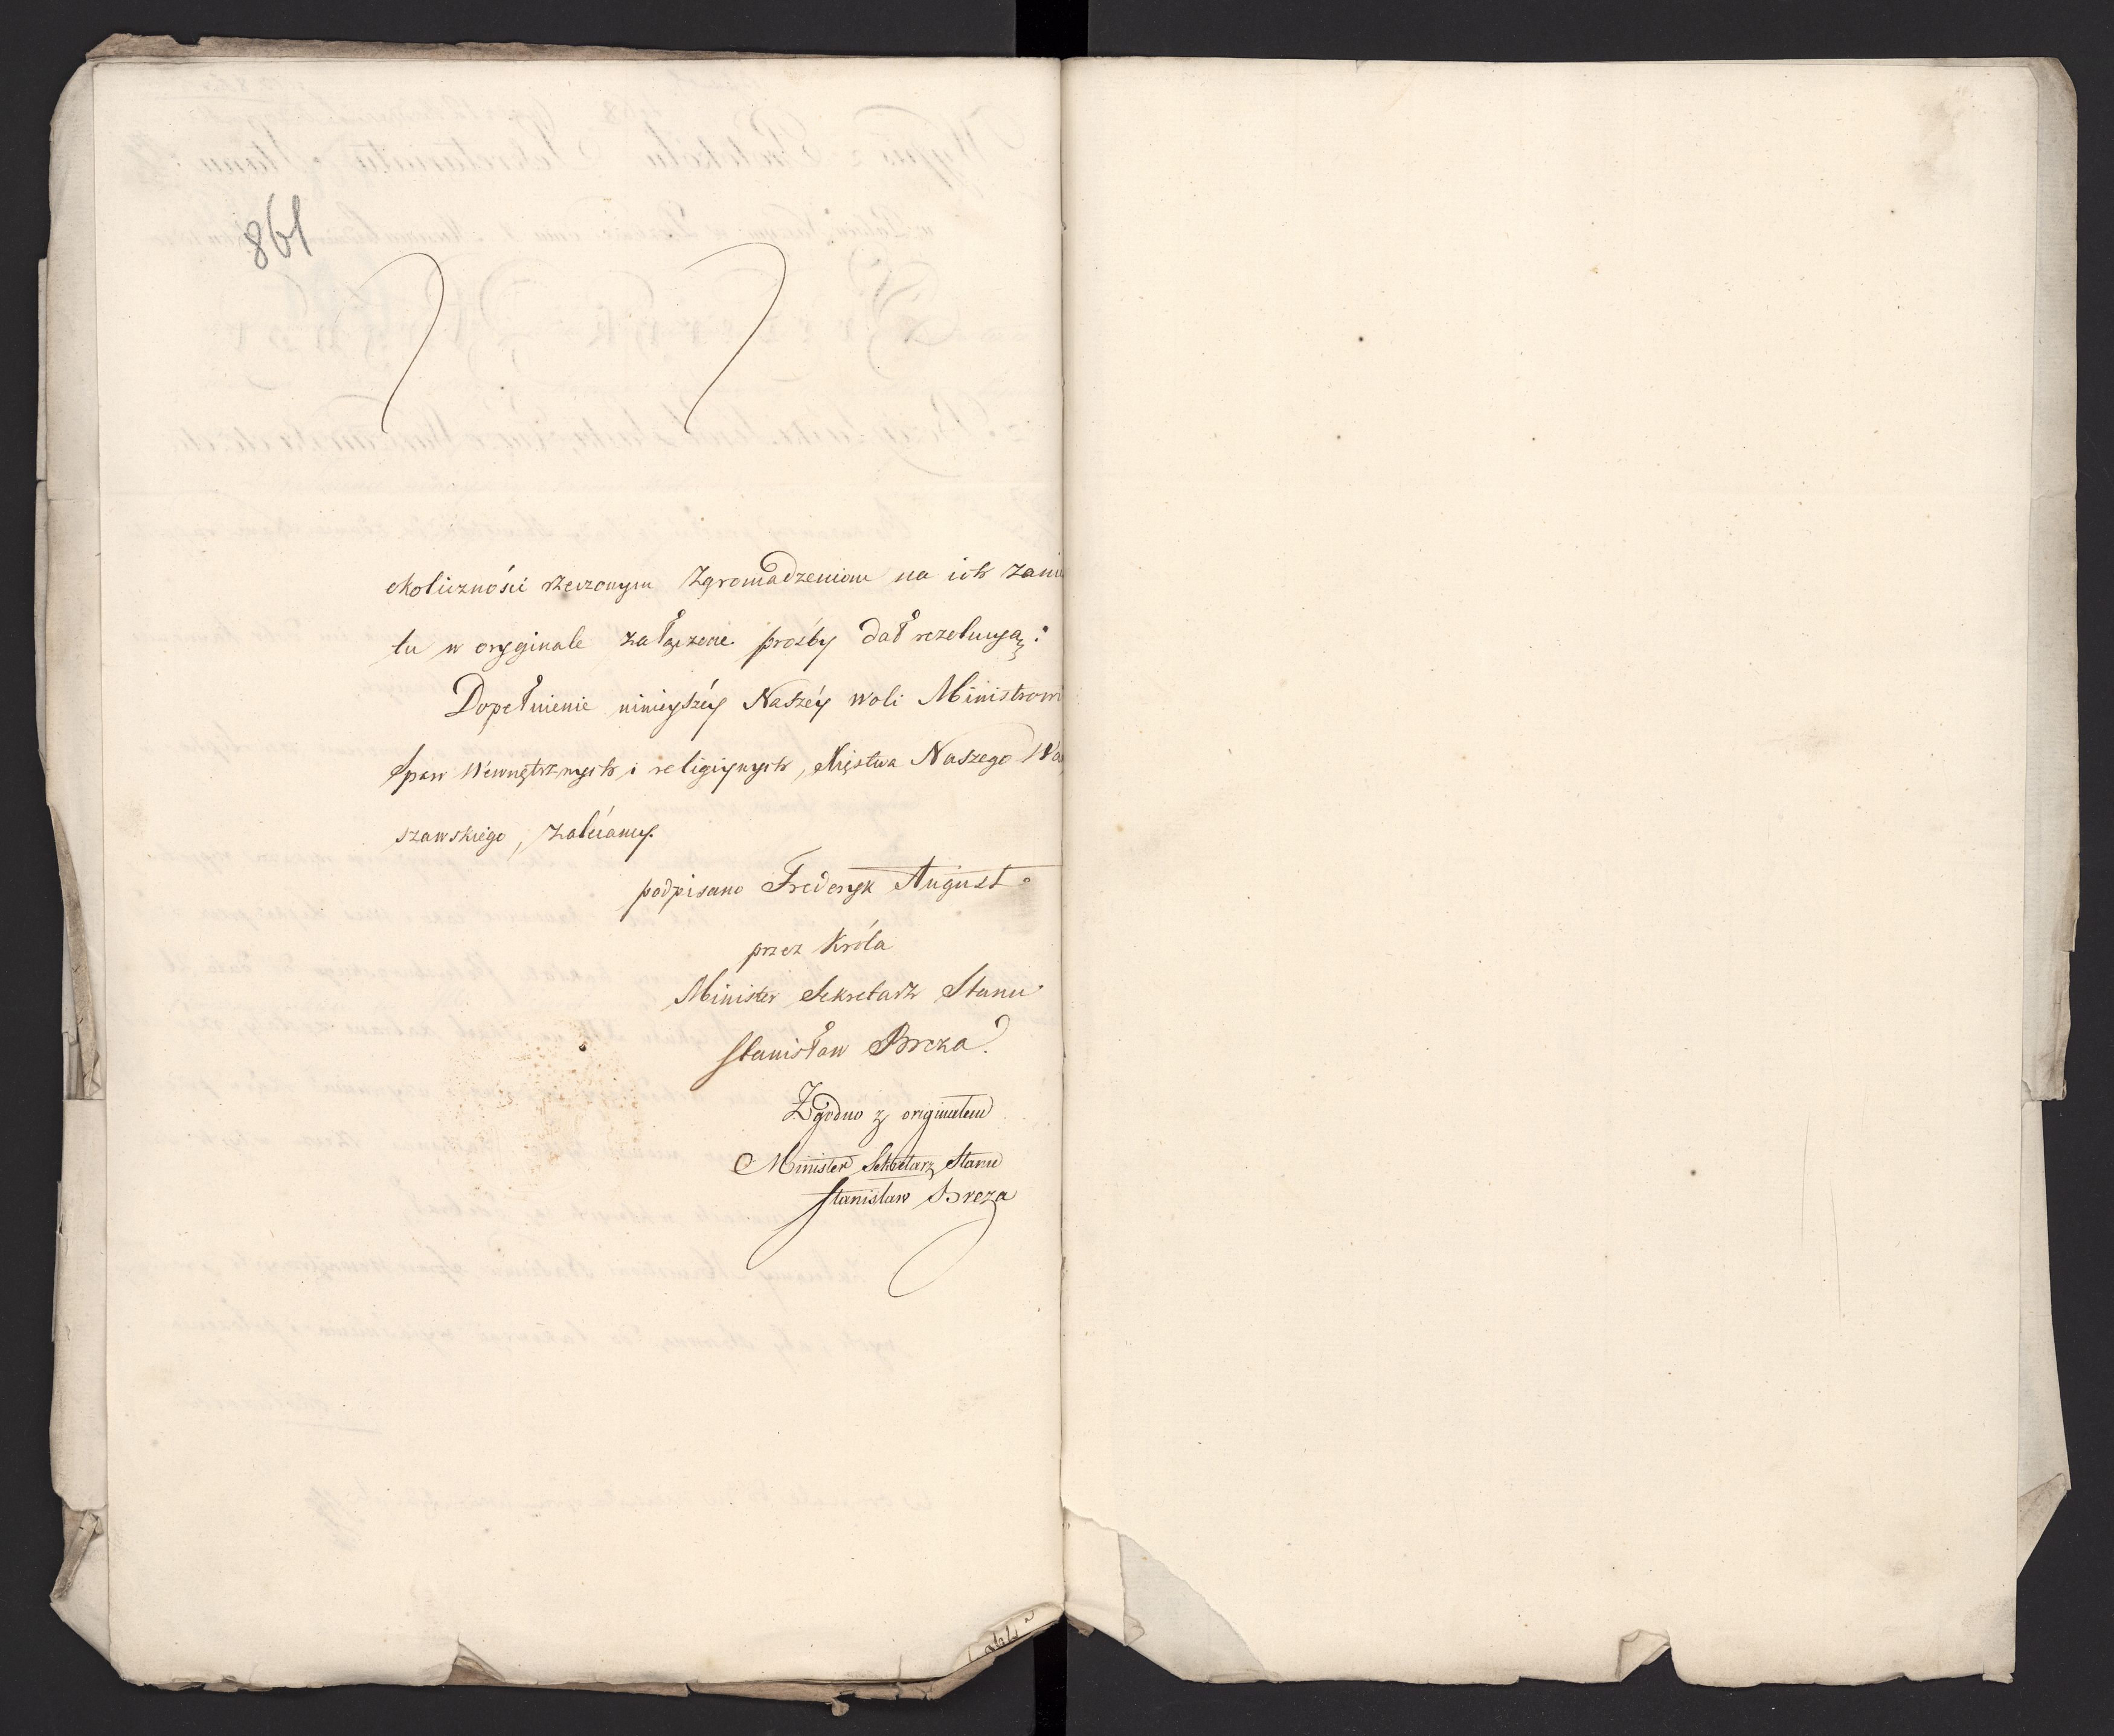 861
okoliczności rzeczonym Zgromadzeniom na ich zani
tu w oryginale załączone prośby dał rezolucyą:
Dopełnienie ninieyszéy Naszéy woli Ministrowi
Spraw Wewnętrznych i religiynych, Xięstwa Naszego War
szawskiego, zalecamy.
podpisano Frederyk August.
przez Króla
Minister Sekretarz Stanu
Stanisław Breza.
Zgodno z originałem
Minister Sekretarz Stanu
Stanisław Breza